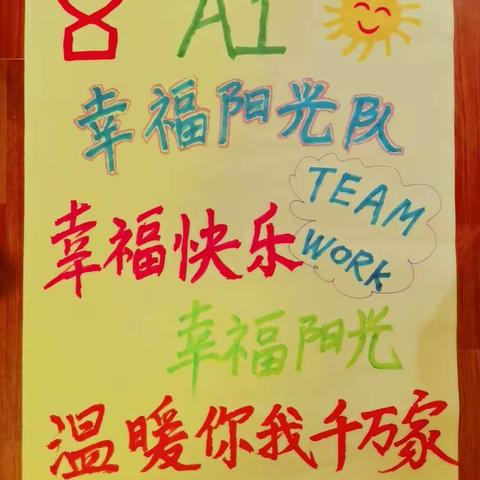 A1
幸福阳光队
TEAM
WORK
幸福快乐
幸福阳光
温暖你我千万家